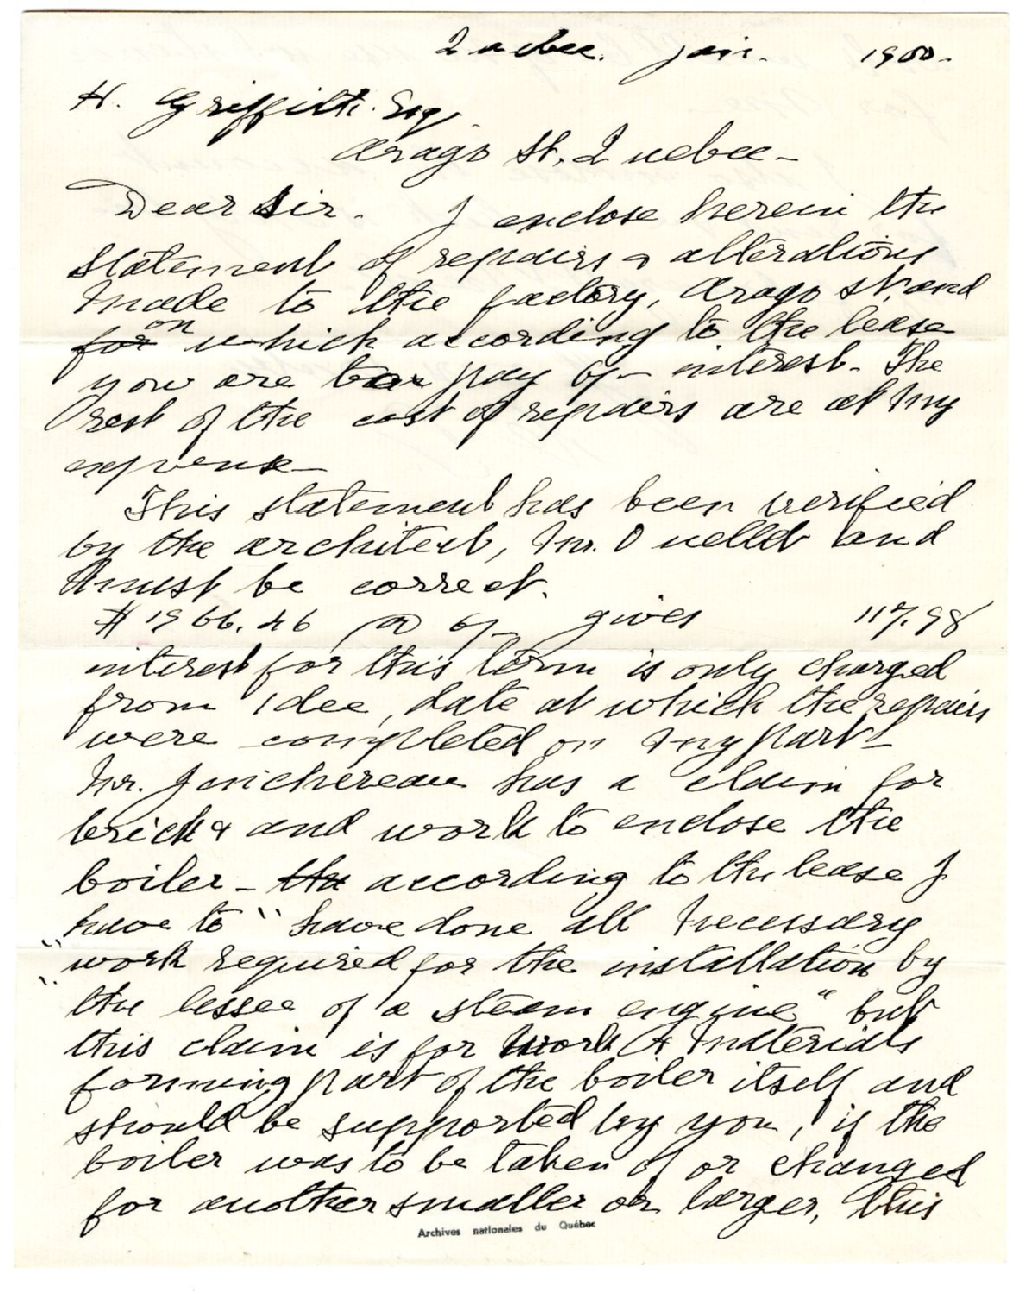 Quebec. Jan. 1900.
H. Griffith. Esq.
Arago St. Quebec -
Dear Sir. I enclose herein the
statement of repairs & alterations
made to the factory, Arago St. and
for on which according to the lease
you are to pay 6% interest. The
rest of the cost of repairs are at my
expense -
This statement has been verified
by the architect, Mr. Ouellet and
must be correct.
$1966.46 @ 6% gives 117.98
interest for this term is only charged
from 1 dec, date at which the repairs
were completed on my part -
Mr. Juchereau has a claim for
brick & and work to enclose the
boiler - the according to the lease I
have to "have done all necessary
"work required for the installation by
"the lessee of a steam engine" but
this claim is for work & materials
forming part of the boiler itself and
should be supported by you, if the
boiler was to be taken of or changed
for another smaller or larger, this
Archives nationales du Québec